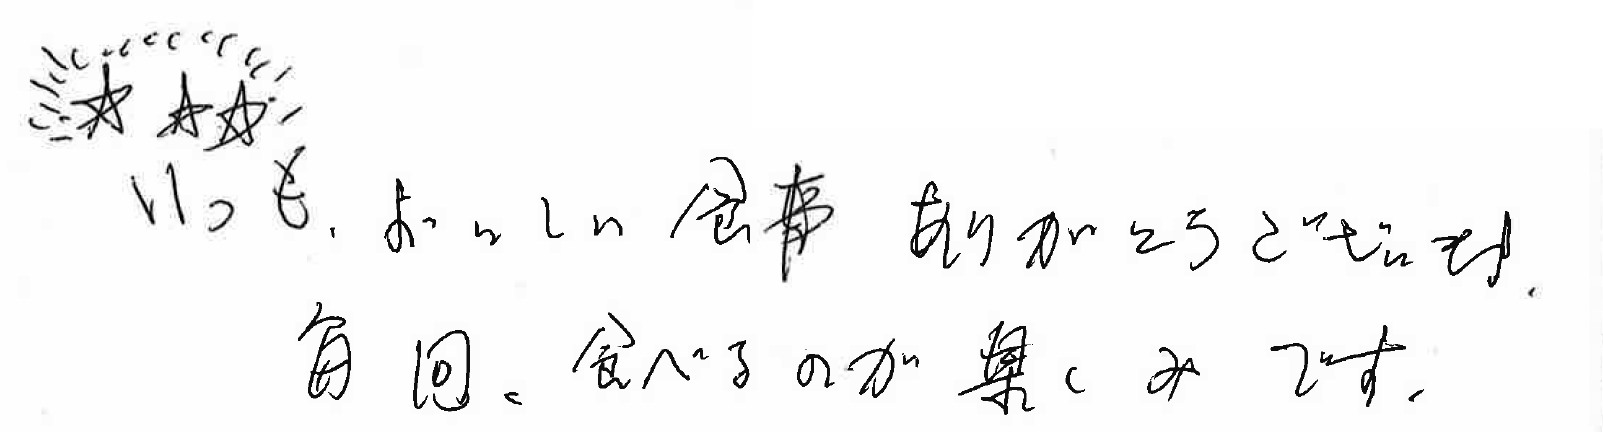 いつも、おいしい食事ありがとうございます。
毎回、食べるのが楽しみです。